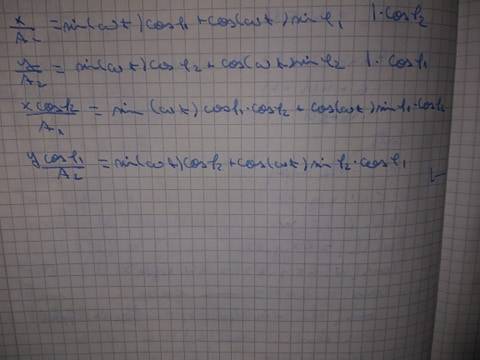 x/A₁ = sin(ωt)cosφ₁ + cos(ωt)sinφ₁ |·cosφ₂
y/A₂ = sin(ωt)cosφ₂ + cos(ωt)sinφ₂ |·cosφ₁
xcosφ₂/A₁ = sin(ωt)cosφ₁·cosφ₂ + cos(ωt)sinφ₁·cosφ₂
ycosφ₁/A₂ = sin(ωt)cosφ₂ + cos(ωt)sinφ₂·cosφ₁